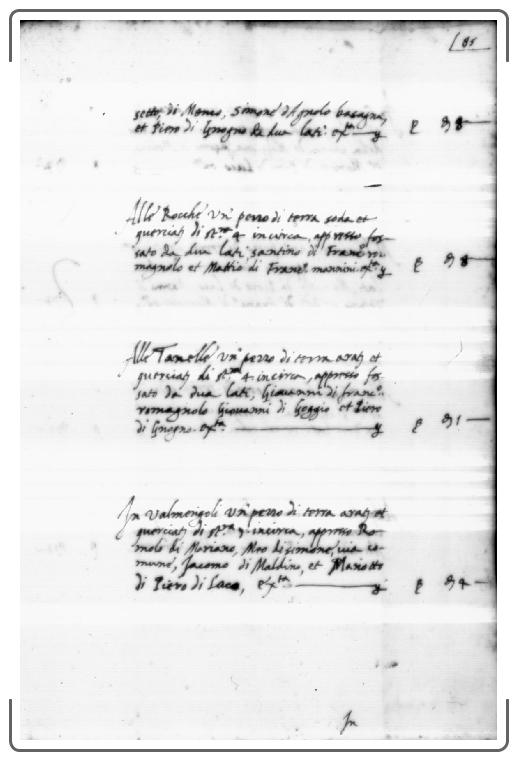 85
setto, di Meneo, Simone d'Agnolo basagna,
et Piero di Gnogno da dua lati ext.
Alle Rocche un' pezzo di terra soda et
querciata di st.ra 4 incirca, appresso fos-
sato da dua lati, santino di Franc.o ro-
magnolo et Matteo di Franc.o mannini ext.
Alle Tamelle un' pezzo di terra arata et
querciata di st.ra 4 incirca, appresso fos-
sato da dua lati, Giovanni di franc.o
romagnolo Giovanni di Geggio et Piero
di Gnogno ext. 1
In Valmengoli un' pezzo di terra arata et
querciata di st.ra incirca, appresso Ro-
molo di Mariano, Meo di simone, via co-
mune, Jacomo di Maldino, et Mariotto
di Piero di Laco, ext. 4
In